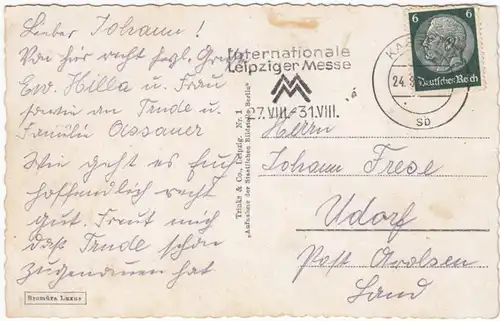 Lieber Johann!
Von hier recht hzgl. Grüße
Ew. Hilla u. Frau
sowie an Trude u.
Familie Assauer
Wie geht es Euch
hoffendlich recht
gut. Freut mich
daß Trude schon
zugenommen hat
Bromüra Luxus
Trinks & Co., Leipzig, Nr. 1
"Aufnahme der Staatlichen Bildstelle, Berlin"
Internationale
Leipziger Messe
MM
27.VIII.-31.VIII.
6 6
Deutsches Reich
KA
24.
sb
Herrn
Johann Frese
Udorf
Post Arolsen
Land